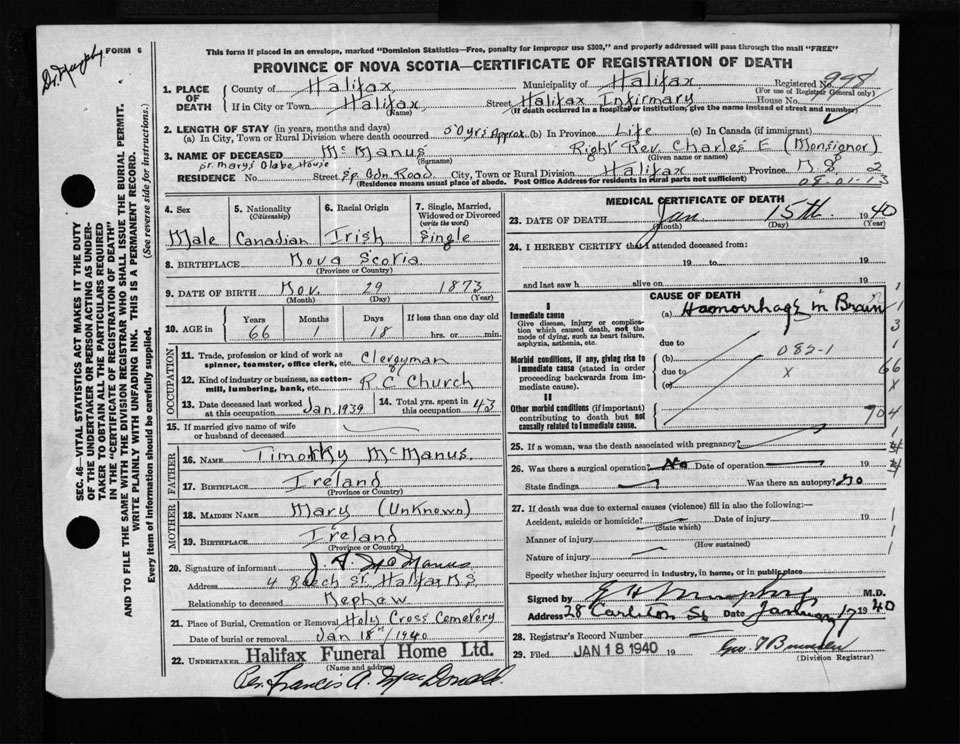 Dr. Murphy
FORM 6
This form if placed in an envelope, marked "Dominion Statistics—Free, penalty for improper use $300," and properly addressed will pass through the mail "FREE"
PROVINCE OF NOVA SCOTIA—CERTIFICATE OF REGISTRATION OF DEATH
SEC. 46—VITAL STATISTICS ACT MAKES IT THE DUTY
OF THE UNDERTAKER OR PERSON ACTING AS UNDER-
TAKER TO OBTAIN ALL THE PARTICULARS REQUIRED
IN THE "CERTIFICATE OF REGISTRATION OF DEATH"
AND TO FILE THE SAME WITH THE DIVISION REGISTRAR WHO SHALL ISSUE THE BURIAL PERMIT.
WRITE PLAINLY WITH UNFADING INK. THIS IS A PERMANENT RECORD.
Every item of information should be carefully supplied. (See reverse side for instructions.)
1. PLACE OF DEATH County of Halifax Municipality of Halifax Registered No. 998
(For use of Registrar General only)
If in City or Town Halifax Street Halifax Infirmary House No.
(Name) (If death occurred in a hospital or institution, give the name instead of street and number)
2. LENGTH OF STAY (in years, months and days)
(a) In City, Town or Rural Division where death occurred 50 yrs Approx (b) In Province Life (c) In Canada (if immigrant)
3. NAME OF DECEASED McManus Right Rev. Charles E (Monsignor)
(Surname) (Given name or names)
St. Mary's Glebe House
RESIDENCE No. Street Sp. Gdn Road City, Town or Rural Division Halifax Province N S 2
(Residence means usual place of abode. Post Office Address for residents in rural parts not sufficient)
08-01-13
4. Sex Male
5. Nationality (Citizenship) Canadian
6. Racial Origin Irish
7. Single, Married, Widowed or Divorced (write the word) Single
8. BIRTHPLACE Nova Scotia
(Province or Country)
9. DATE OF BIRTH Nov. 29 1873
(Month) (Day) (Year)
10. AGE in Years Months Days If less than one day old
66 1 18 hrs. or min.
OCCUPATION
11. Trade, profession or kind of work as spinner, teamster, office clerk, etc. Clergyman
12. Kind of industry or business, as cotton-mill, lumbering, bank, etc. R.C Church
13. Date deceased last worked at this occupation Jan. 1939
14. Total yrs. spent in this occupation 43
15. If married give name of wife or husband of deceased
FATHER
16. NAME Timothy McManus
17. BIRTHPLACE Ireland
(Province or Country)
MOTHER
18. MAIDEN NAME Mary (Unknown)
19. BIRTHPLACE Ireland
(Province or Country)
20. Signature of informant McManus
Address 4 Beech St. Halifax N.S
Relationship to deceased Nephew
21. Place of Burial, Cremation or Removal Holy Cross Cemetery
Date of burial or removal Jan 18th/1940
22. UNDERTAKER Halifax Funeral Home Ltd.
(Name and address)
Per. Francis A. MacDonald.
MEDICAL CERTIFICATE OF DEATH
23. DATE OF DEATH Jan 15th 1940
(Month) (Day) (Year)
24. I HEREBY CERTIFY that I attended deceased from:
19 to 19
and last saw h alive on 19
CAUSE OF DEATH
I
Immediate cause (a) Haemorrhage in Brain
Give disease, injury or complication which caused death, not the mode of dying, such as heart failure, asphyxia, asthenia, etc.
due to
Morbid conditions, if any, giving rise to immediate cause (stated in order proceeding backwards from immediate cause). (b) 082-1
due to X
(c)
II
Other morbid conditions (if important) contributing to death but not causally related to immediate cause.
1
3
66
X
904
25. If a woman, was the death associated with pregnancy?
26. Was there a surgical operation? No Date of operation 19
State findings Was there an autopsy? No
27. If death was due to external causes (violence) fill in also the following:—
Accident, suicide or homicide? Date of injury 19
(State which)
Manner of injury
(How sustained)
Nature of injury
Specify whether injury occurred in industry, in home, or in public place
Signed by Murphy M.D.
Address 28 Carleton St Date January 17 1940
28. Registrar's Record Number
29. Filed JAN 18 1940 19
(Division Registrar)